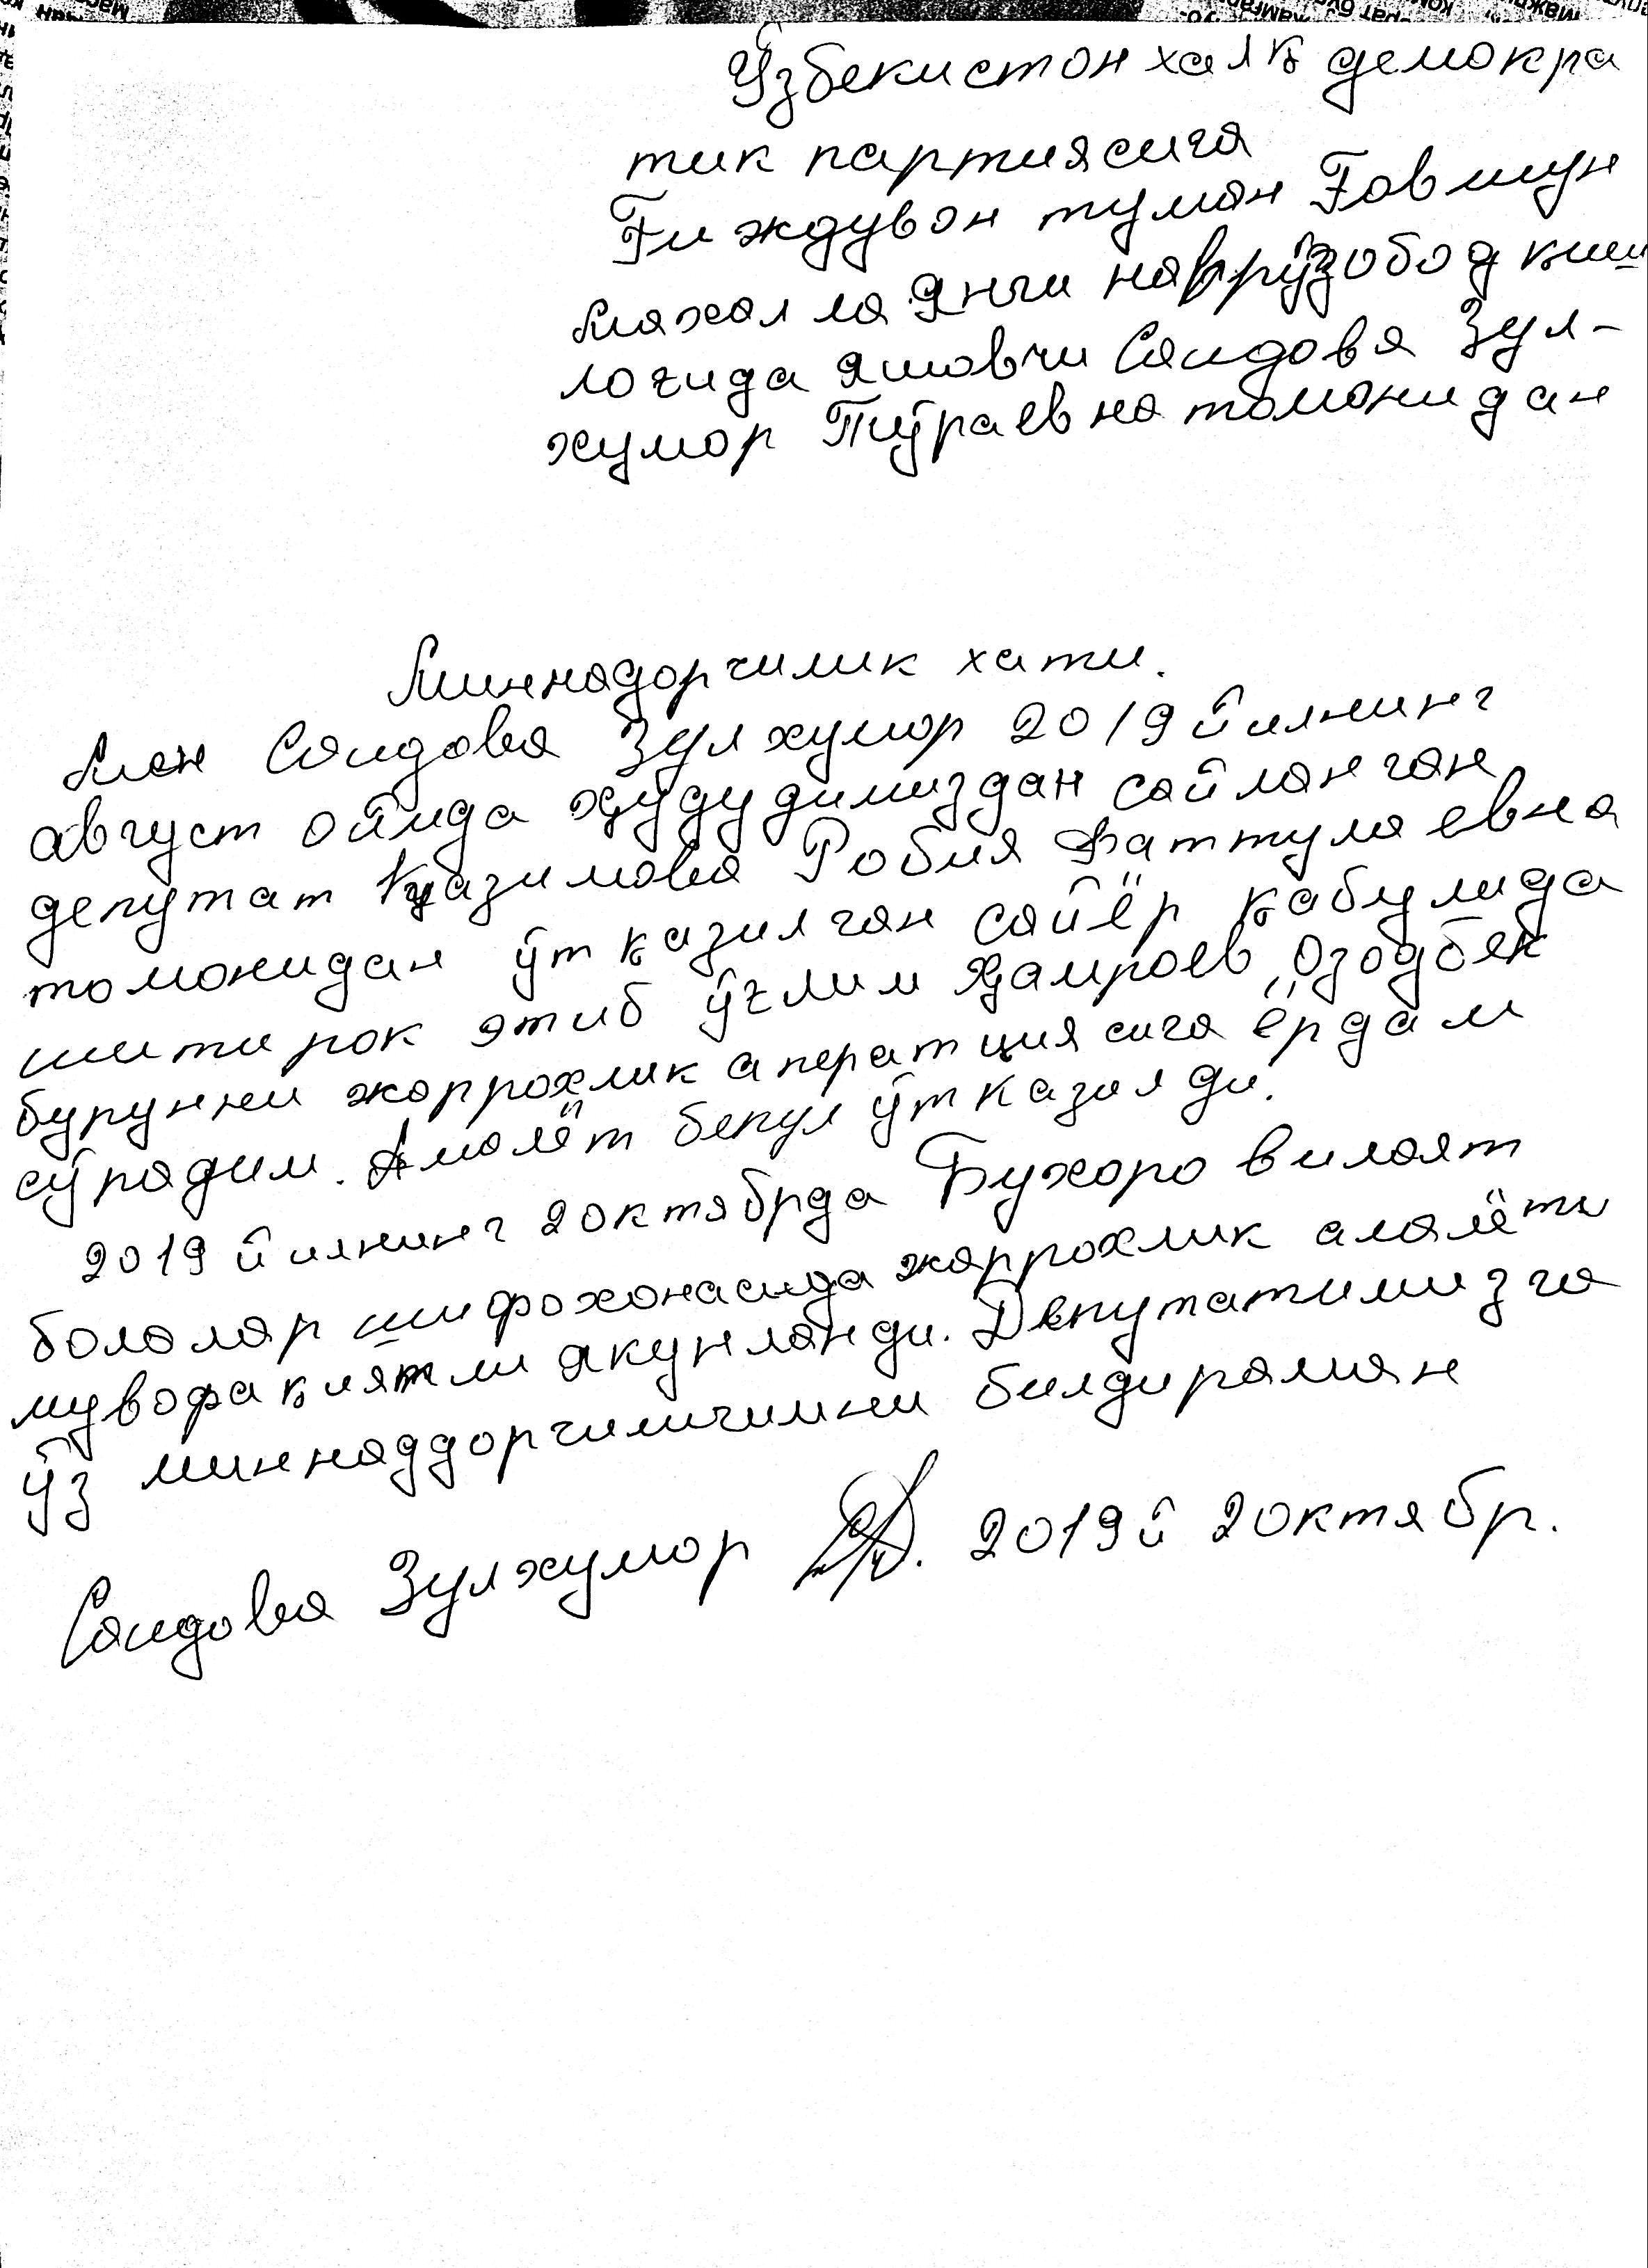 Ўзбекистон халқ демокра
тик партиясига
Ғиждувон туман Ғовшун
махалла Янги наврўзобод қиш
логида яшовчи Саидова Зул-
хумор Тўраевна томонидан
Миннадорчилик хати.
Мен Саидова Зулхумор 2019 йилнинг
август ойида ҳудудимиздан сайланган
депутат Казимова Робия Фаттулаевна
томонидан ўтказилган сайёр қабулида
иштирок этиб ўғлим Ҳамроев Озодбек
бурунни жаррохлик аператциясига ёрдам
сўрадим. Амалёт бепул ўтказилди.
2019 йилнинг 2октябрда Бухоро вилоят
болалар шифохонасида жаррохлик амалёти
мувофақиятли якунланди. Депутатимизга
ўз миннаддорчилигимни билдираман
Саидова Зулхумор 2019й 2октябр.